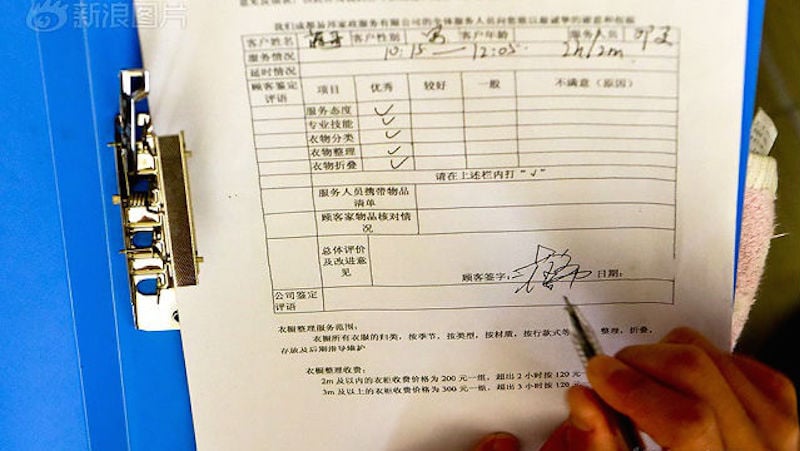 新浪图片
我们成都
家政服务有限公司的全体服务人员向您致以最诚挚的谢意和祝福
客户姓名 客户性别 男 客户年龄 服务人员
服务情况 10:15—12:05 2h/2m
延时情况
顾客鉴定评语 项目 优秀 较好 一般 不满意（原因）
服务态度 ✓
专业技能 ✓
衣物分类 ✓
衣物整理 ✓
衣物折叠 ✓
请在上述栏内打“√”
服务人员携带物品
清单
顾客家物品核对情
况
总体评价
及改进意
见
顾客签字： 日期：
公司鉴定
评语
衣橱整理服务范围：
衣橱所有衣服的归类，按季节，按类型，按材质，按行款式等 整理，折叠，
存放及后期指导维护
衣橱整理收费：
2m 及以内的衣柜收费价格为 200 元一组，超出 2 小时按 120 元
3m 及以上的衣柜收费价格为 300 元一组，超出 3 小时按 120